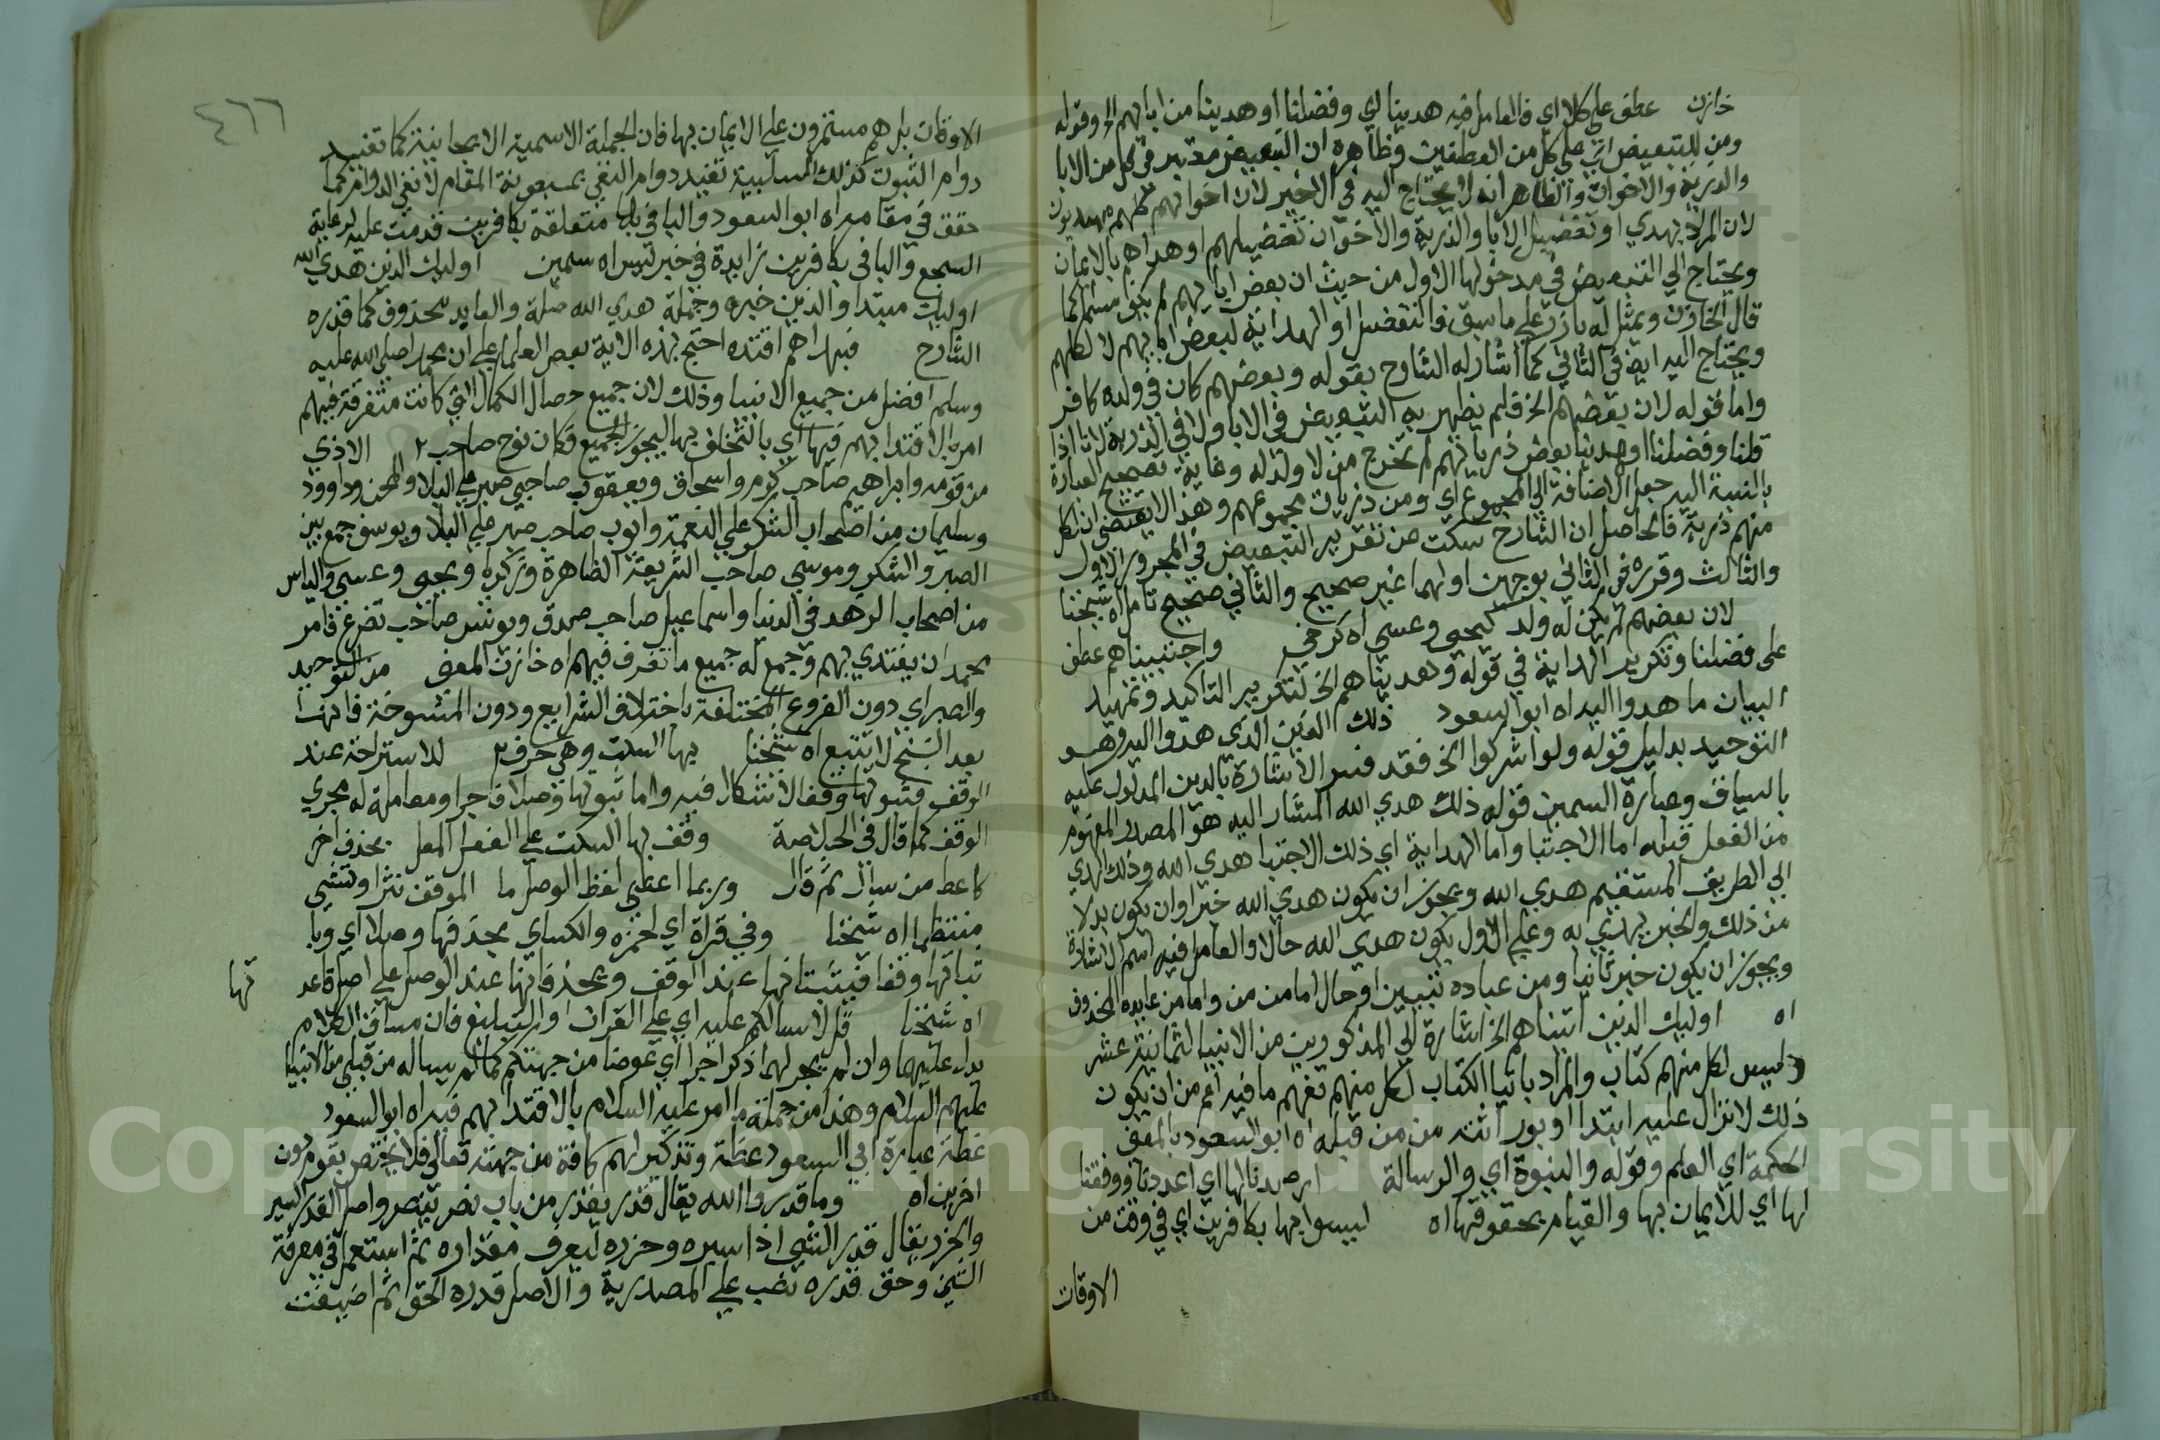 خازن عطف على كلا اي فالعامل فيه هدينا اي وفضلنا او هدينا من ابايهم الخ وقوله
ومن للتبعيض اي على كل من العطفين وظاهره ان التبعيض معتبر في كل من الابا
والذرية والاخوان والظاهر انه لا يحتاج اليه في الاخير لان اخوانهم كلهم مهديون
لان المراد بهدي او تفضيل الابا والذرية والاخوان تفضيلهم او هداهم بالايمان
ويحتاج الي التبعيض في مدخولها الاول من حيث ان بعض ابايهم لم يكن مسلما كما
قال الخازن ويمثل له بازر على ما سبق فالتفضيل او الهداية لبعض ابايهم لا لكلهم
ويحتاج اليه ايضا في الثاني كما اشار له الشارح بقوله وبعضهم كان في ولده كافر
واما قوله لان بعضهم الخ فلم يظهر به التبعيض في الابا ولا في الذرية لانا اذا
قلنا وفضلنا او هدينا بعض ذرياتهم لم تخرج من لا ولد له وغاية تصحيح العبارة
بالنسبة اليه جعل الاضافة الي المجموع اي ومن ذريات مجموعهم وهذا لا يقتضي ان لكل
منهم ذرية فالحاصل ان الشارح سكت عن تقرير التبعيض في المجرور الاول
والثالث وقرره في الثاني بوجهين اولهما غير صحيح والثاني صحيح تامل اه شيخنا
لان بعضهم لم يكن له ولد كيحيى وعيسى اه كرخي واجتبيناهم عطف
على فضلنا وتكرير الهداية في قوله وهديناهم الخ لتكرير التاكيد وتمهيد
البيان ما هدوا اليه اه ابو السعود ذلك الدين الذي هدوا اليه وهو
التوحيد بدليل قوله ولو اشركوا الخ فقد فسر الاشارة بالدين المدلول عليه
بالسياق وعبارة السمين قوله ذلك هدي الله المشار اليه هو المصدر المفهوم
من الفعل قبله اما الاجتبا واما الهداية اي ذلك الاجتبا هدي الله وذلك الهدي
الي الطريق المستقيم هدي الله ويجوز ان يكون هدي الله خبرا وان يكون بدلا
من ذلك والخبر يهدي به وعلى الاول يكون هدي الله حالا والعامل فيه اسم الاشارة
ويجوز ان يكون خبرا ثانيا ومن عباده تبيين او حال اما من من واما من عايده المحذوف
اه اوليك الذين اتيناهم الخ اشارة الي المذكورين من الانبيا الثمانية عشر
وليس لكل منهم كتاب والمراد باتيا الكتاب لكل منهم تفهم ما فيه اعم من ان يكون
ذلك لانزال عليه ابتدا او بوراثته من من قبله اه ابو السعود بالمعنى
الحكمة اي العلم وقوله والنبوة اي والرسالة ارصدنا لها اي اعددنا ووفقنا
لها اي للايمان بها والقيام بحقوقها اه ليسوا بها بكافرين اي في وقت من
الاوقات
٤٦٦
الاوقات بل هم مستمرون على الايمان بها فان الجملة الاسمية الايجابية كما تفيد
دوام الثبوت كذلك السلبية تفيد دوام النفي بمعونة المقام لا نفي الدوام كما
حقق في مقامه اه ابو السعود والبا في بها متعلقة بكافرين قدمت عليه لرعاية
السجع والبا في بكافرين زايدة في خبر ليس اه سمين اوليك الذين هدي الله
اوليك مبتدا والذين خبره وجملة هدي الله صلة والعايد محذوف كما قدره
الشارح فبهداهم اقتده احتج بهذه الاية بعض العلما على ان محمدا صلى الله عليه
وسلم افضل من جميع الانبيا وذلك لان جميع خصال الكمال التي كانت متفرقة فيهم
امره بالاقتدا بهم فيها اي بالتخلق بها ليجوز الجميع فكان نوح صاحب ٢ الاذي
من قومه وابراهيم صاحب كرم واسحاق ويعقوب صاحبي صبر على البلا والمحن وداوود
وسليمان من اصحاب الشكر على النعمة وايوب صاحب صبر على البلا ويوسف جمع بين
الصبر والشكر وموسى صاحب الشريعة الظاهرة وزكريا ويحيى وعيسى والياس
من اصحاب الزهد في الدنيا واسماعيل صاحب صدق ويونس صاحب تضرع فامر
محمد ان يقتدي بهم وجمع له جميع ما تفرق فيهم اه خازن المعنى من التوحيد
والصبر اي دون الفروع المختلفة باختلاف الشرايع ودون المنسوخة فانها
بعد النسخ لا تتبع اه شيخنا بها السكت وهي حرف ٢ للاستراحة عند
الوقف فثبوتها وقفا لا اشكال فيه واما ثبوتها وصلا فاجرا ومعاملة له مجري
الوقف كما قال في الخلاصة وقف بها السكت على الفعل المعل بحذف اخر
كاعط من سال ثم قال وربما اعطي لفظ الوصل ما الموقف نثرا وفشي
منتظما اه شيخنا وفي قراة اي لحمزه والكساي بحذفها وصلا اي وبا
ثباتها وقفا فيثبتانها عند الوقف ويحذفانها عند الوصل على اصل قاعد تها
اه شيخنا قل لا اسالكم عليه اي على القران او التبليغ فان مساق الكلام
يدل عليهما وان لم يجر لهما ذكر اجرا اي عوضا من جهتكم كما لم يساله من قبلي من الانبيا
عليهم السلام وهذا من جملة ما امر عليه السلام بالاقتدا بهم فيه اه ابو السعود
عظة عبارة ابي السعود عظة وتذكير لهم كافة من جهته تعالى فلا يختص بقوم دون
اخرين اه وما قدروا الله يقال قدر يقدر من باب نصر ينصر واصل القدر السبر
والحزر يقال قدر الشي اذا سبره وحزره ليعرف مقداره ثم استعمل في معرفة
الشي وحق قدره نصب على المصدرية والاصل قدره الحق ثم اضيفت
Copyright © King Saud University